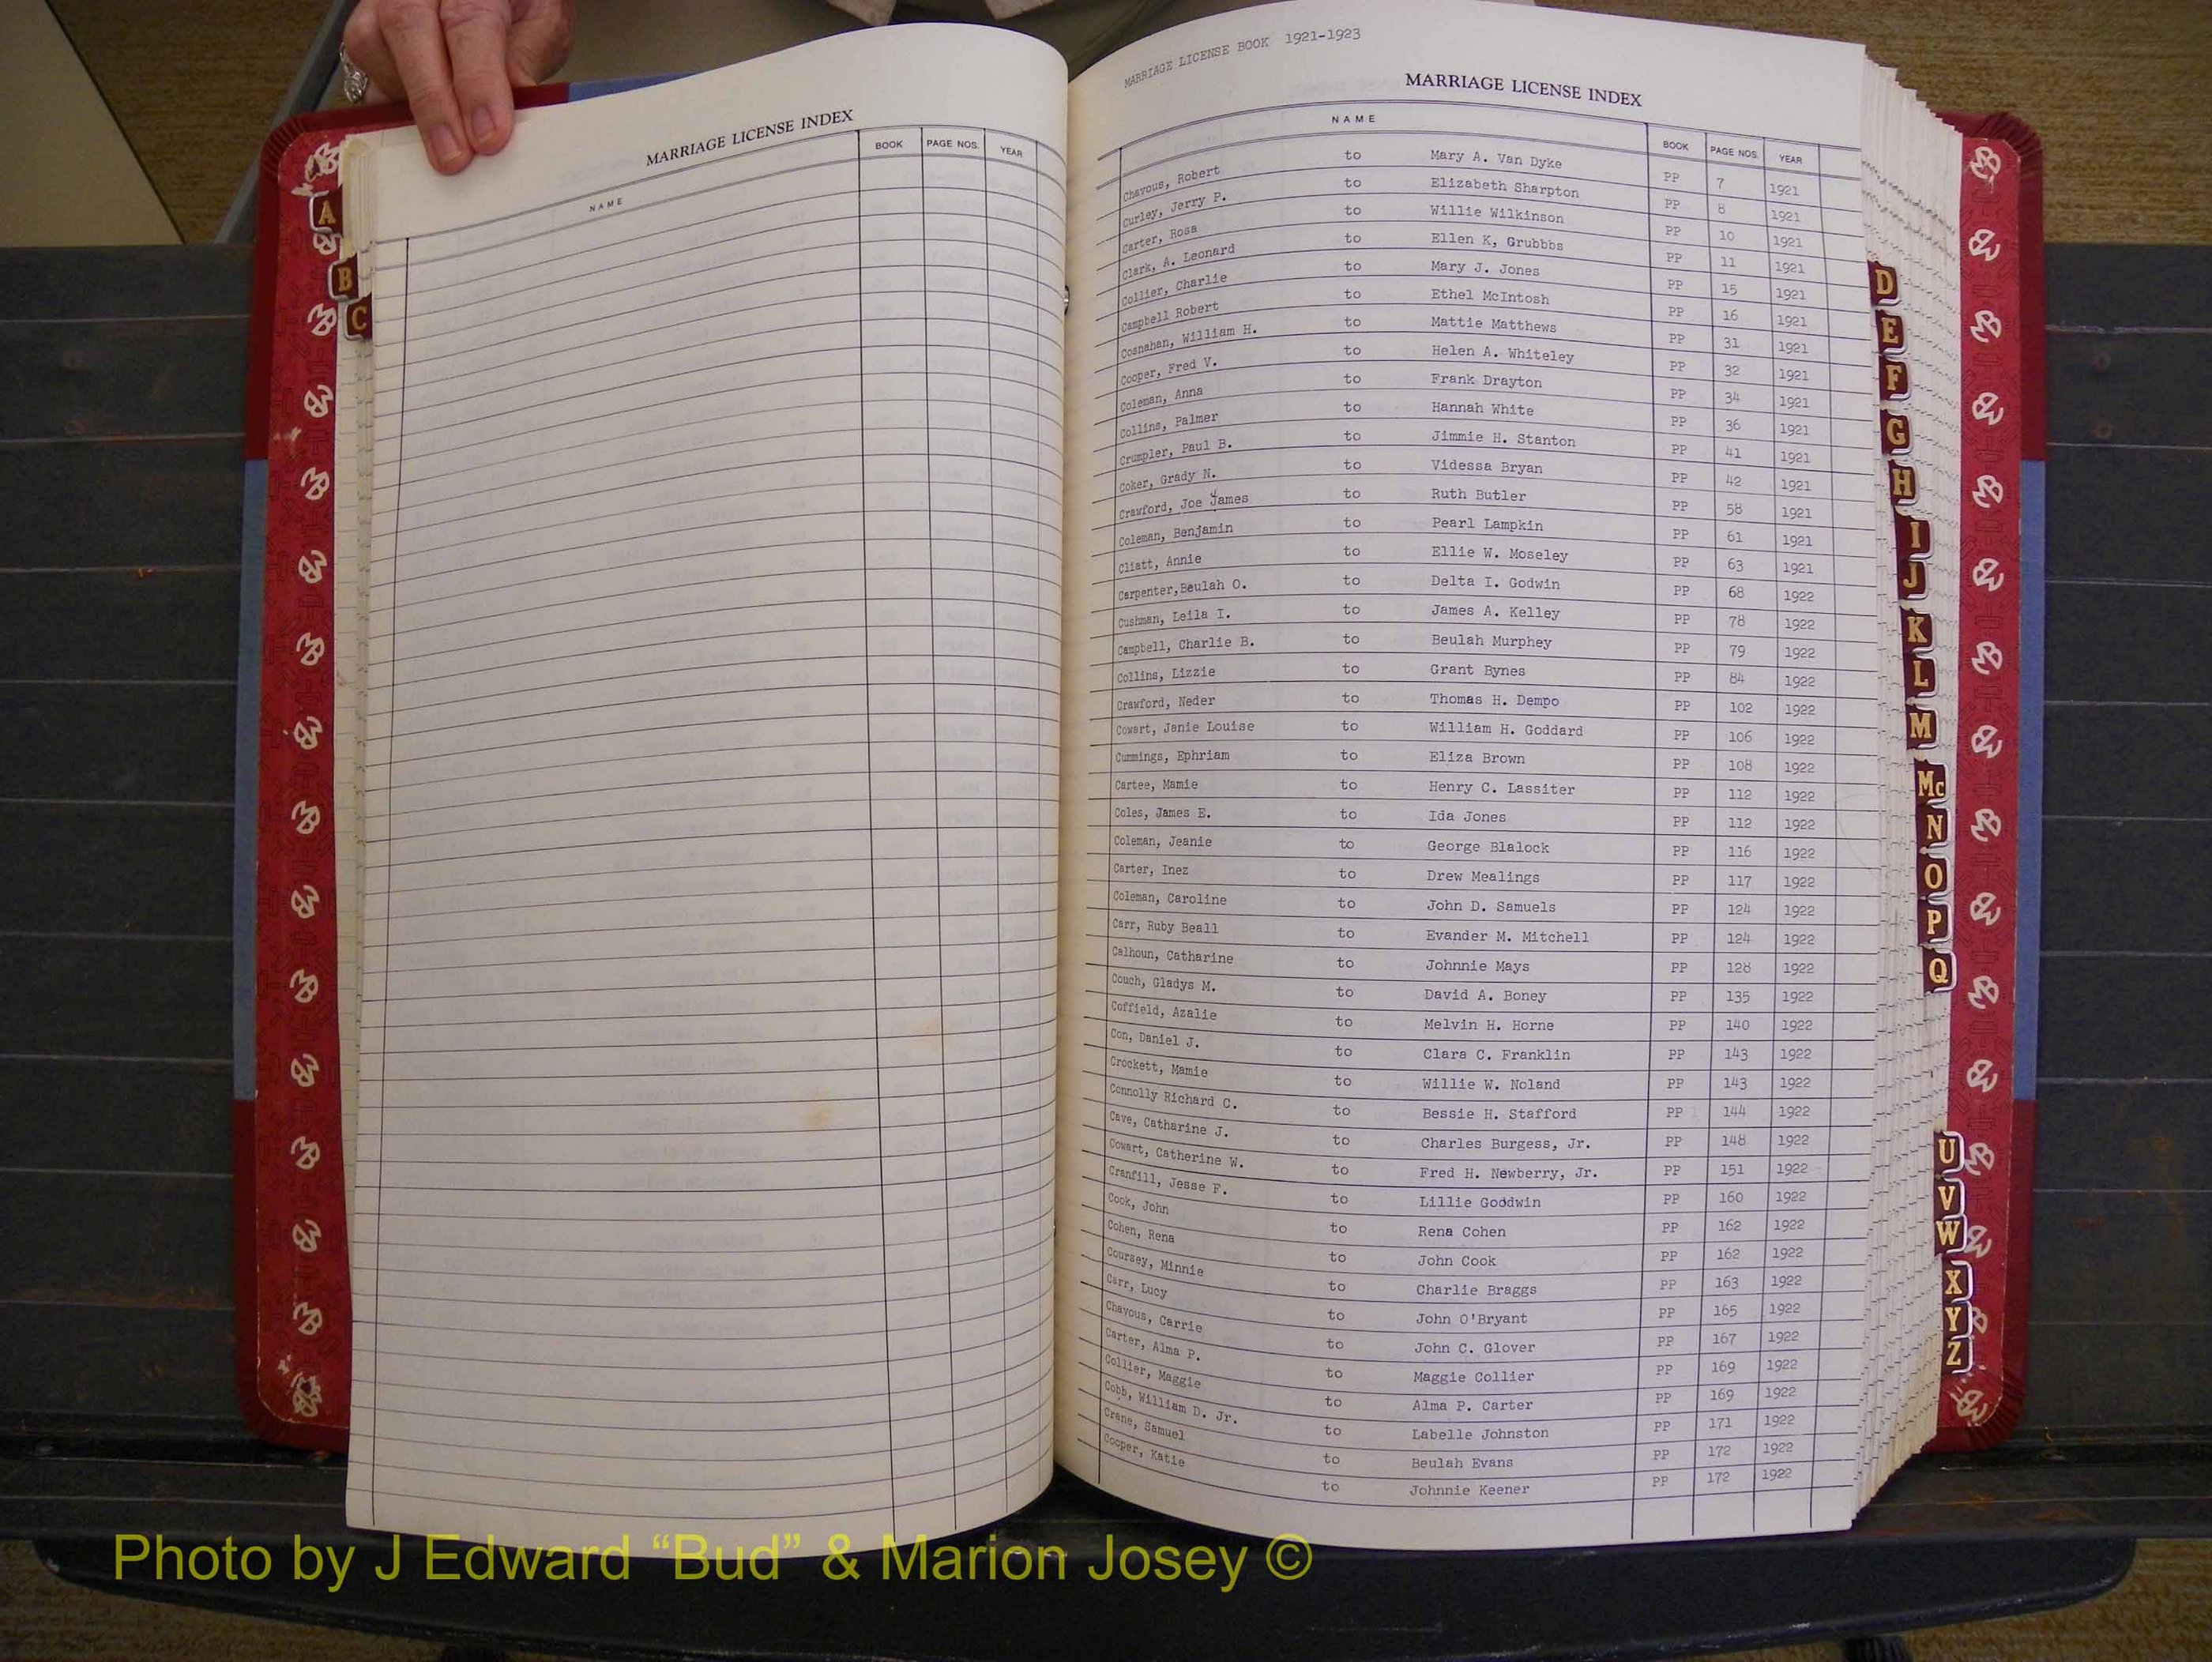 MARRIAGE LICENSE INDEX
NAME BOOK PAGE NOS. YEAR
A
B
C
MARRIAGE LICENSE BOOK 1921-1923
MARRIAGE LICENSE INDEX
NAME BOOK PAGE NOS. YEAR
Chavous, Robert to Mary A. Van Dyke PP 7 1921
Curley, Jerry P. to Elizabeth Sharpton PP 8 1921
Carter, Rosa to Willie Wilkinson PP 10 1921
Clark, A. Leonard to Ellen K, Grubbbs PP 11 1921
Collier, Charlie to Mary J. Jones PP 15 1921
Campbell Robert to Ethel McIntosh PP 16 1921
Cosnahan, William H. to Mattie Matthews PP 31 1921
Cooper, Fred V. to Helen A. Whiteley PP 32 1921
Coleman, Anna to Frank Drayton PP 34 1921
Collins, Palmer to Hannah White PP 36 1921
Crumpler, Paul B. to Jimmie H. Stanton PP 41 1921
Coker, Grady N. to Videssa Bryan PP 42 1921
Crawford, Joe James to Ruth Butler PP 58 1921
Coleman, Benjamin to Pearl Lampkin PP 61 1921
Cliatt, Annie to Ellie W. Moseley PP 63 1921
Carpenter,Beulah O. to Delta I. Godwin PP 68 1922
Cushman, Leila I. to James A. Kelley PP 78 1922
Campbell, Charlie B. to Beulah Murphey PP 79 1922
Collins, Lizzie to Grant Bynes PP 84 1922
Crawford, Neder to Thomas H. Dempo PP 102 1922
Cowart, Janie Louise to William H. Goddard PP 106 1922
Cummings, Ephriam to Eliza Brown PP 108 1922
Cartee, Mamie to Henry C. Lassiter PP 112 1922
Coles, James E. to Ida Jones PP 112 1922
Coleman, Jeanie to George Blalock PP 116 1922
Carter, Inez to Drew Mealings PP 117 1922
Coleman, Caroline to John D. Samuels PP 124 1922
Carr, Ruby Beall to Evander M. Mitchell PP 124 1922
Calhoun, Catharine to Johnnie Mays PP 128 1922
Couch, Gladys M. to David A. Boney PP 135 1922
Coffield, Azalie to Melvin H. Horne PP 140 1922
Con, Daniel J. to Clara C. Franklin PP 143 1922
Crockett, Mamie to Willie W. Noland PP 143 1922
Connolly Richard C. to Bessie H. Stafford PP 144 1922
Cave, Catharine J. to Charles Burgess, Jr. PP 148 1922
Cowart, Catherine W. to Fred H. Newberry, Jr. PP 151 1922
Cranfill, Jesse F. to Lillie Goodwin PP 160 1922
Cook, John to Rena Cohen PP 162 1922
Cohen, Rena to John Cook PP 162 1922
Coursey, Minnie to Charlie Braggs PP 163 1922
Carr, Lucy to John O'Bryant PP 165 1922
Chavous, Carrie to John C. Glover PP 167 1922
Carter, Alma P. to Maggie Collier PP 169 1922
Collier, Maggie to Alma P. Carter PP 169 1922
Cobb, William D. Jr. to Labelle Johnston PP 171 1922
Crane, Samuel to Beulah Evans PP 172 1922
Cooper, Katie to Johnnie Keener PP 172 1922
D
E
F
G
H
I
J
K
L
M
Mc
N
O
P
Q
U
V
W
X
Y
Z
Photo by J Edward “Bud” & Marion Josey ©